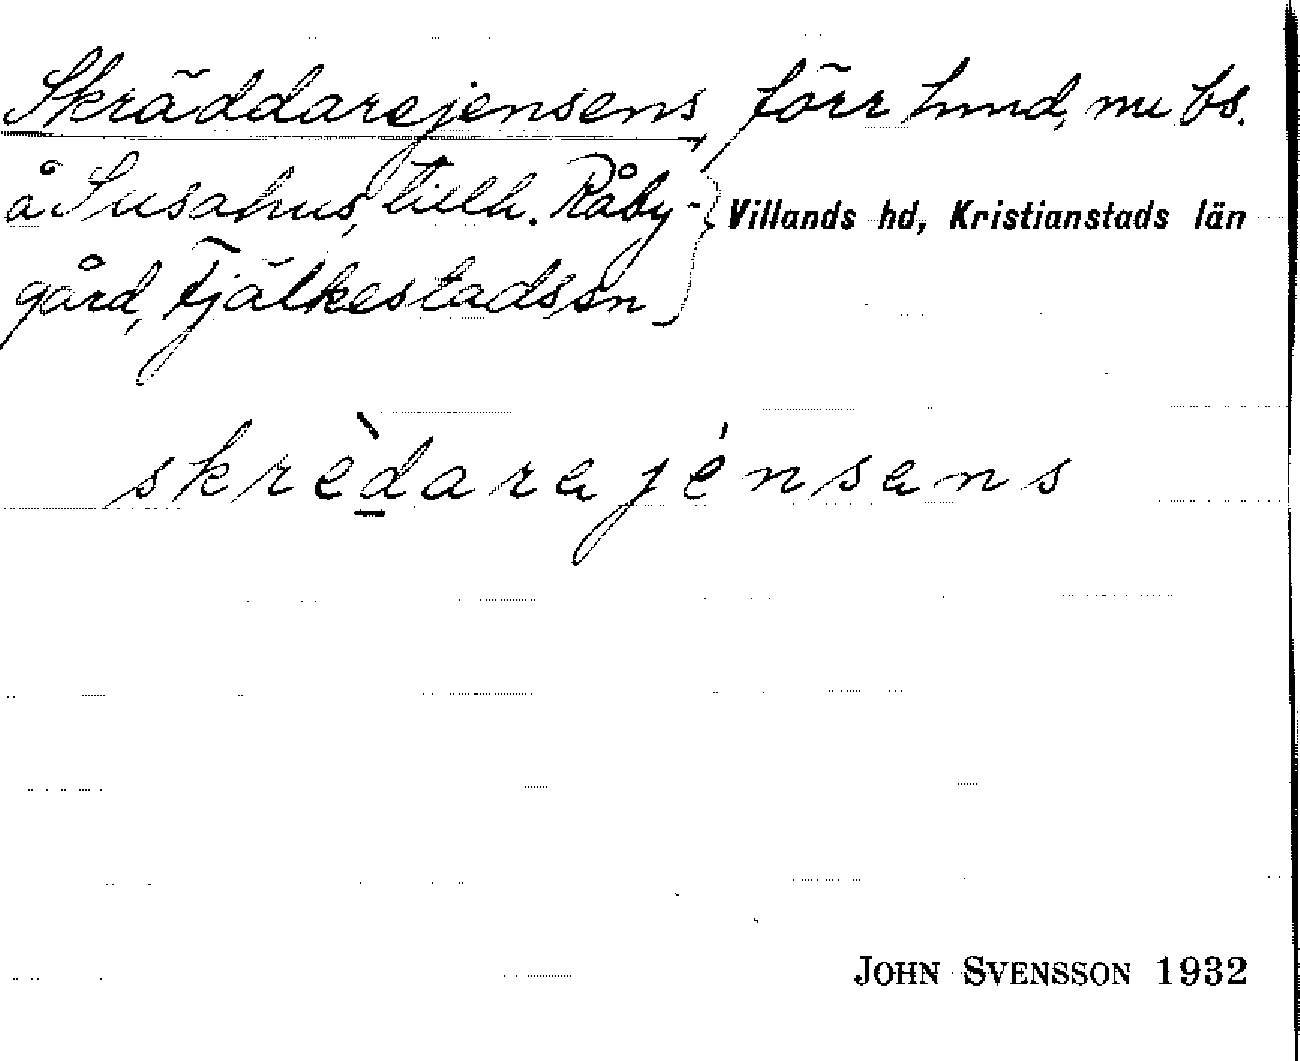 Skräddarejensens, förr hmd, nu bs.
å Susahus, tillh. Råby-
gård, Fjälkestads sn
Villands hd, Kristianstads län
skrèdarajénsans
JOHN SVENSSON 1932